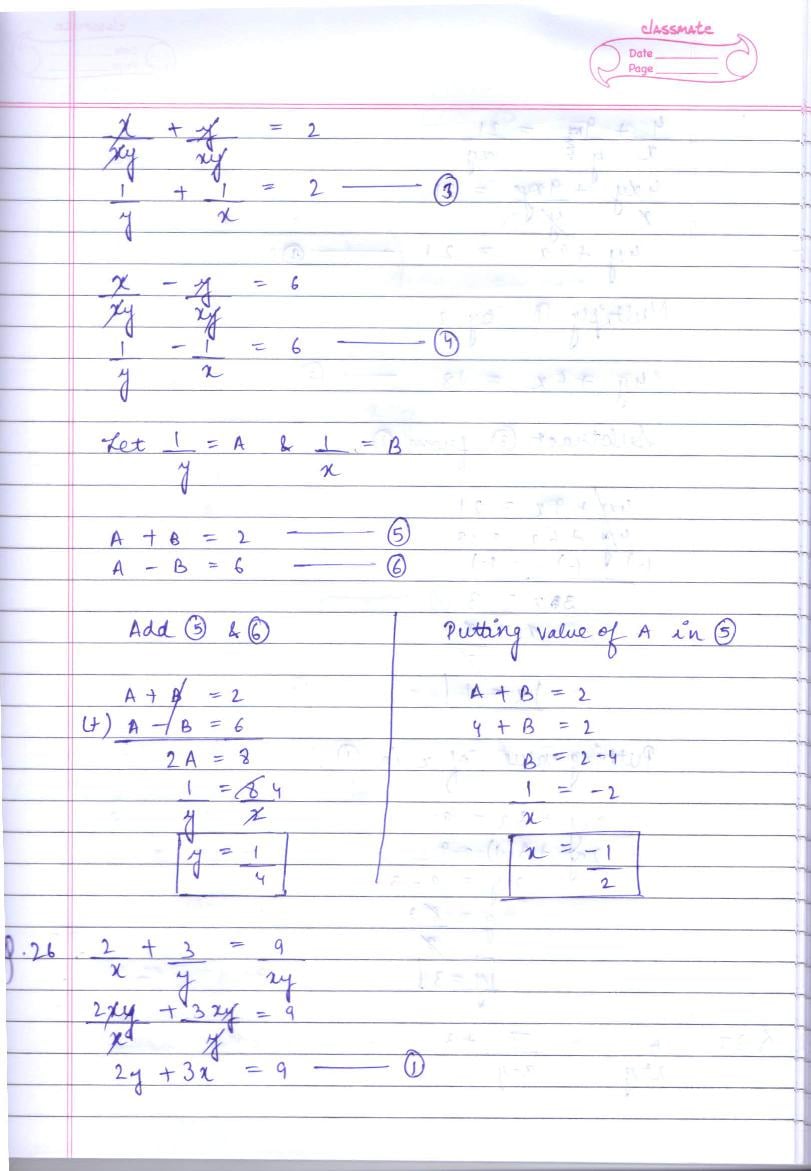 classmate
Date
Page
x/xy + y/xy = 2
1/y + 1/x = 2 —— ③
x/xy - y/xy = 6
1/y - 1/x = 6 —— ④
Let 1/y = A & 1/x = B
A + B = 2 —— ⑤
A - B = 6 —— ⑥
Add ⑤ & ⑥
A + B = 2
(+) A - B = 6
2A = 8
1/y = 8/2 4
y = 1/4
Putting value of A in ⑤
A + B = 2
4 + B = 2
B = 2-4
1/x = -2
x = -1/2
Q.26 2/x + 3/y = 9/xy
2xy/x + 3xy/y = 9
2y + 3x = 9 —— ①